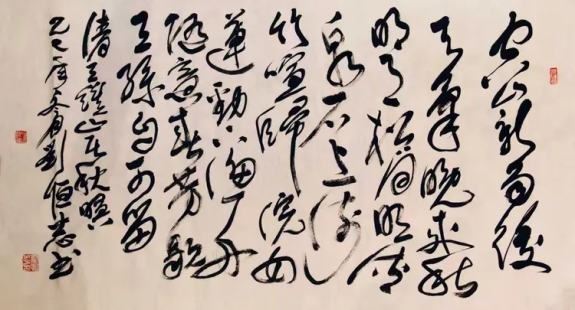 空山新雨後
天氣晚來秋
明月松間照清
泉石上流
竹喧歸浣女
蓮動下漁舟
隨意春芳歇
王孫自可留
王維山居秋暝
劉恒志書